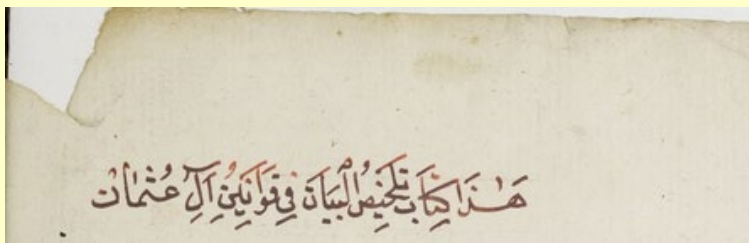 هَذَا كِتَابُ تَلْخِيصُ الْبَيَانِ فِي قَوَانِينِ آلِ عُثْمَان